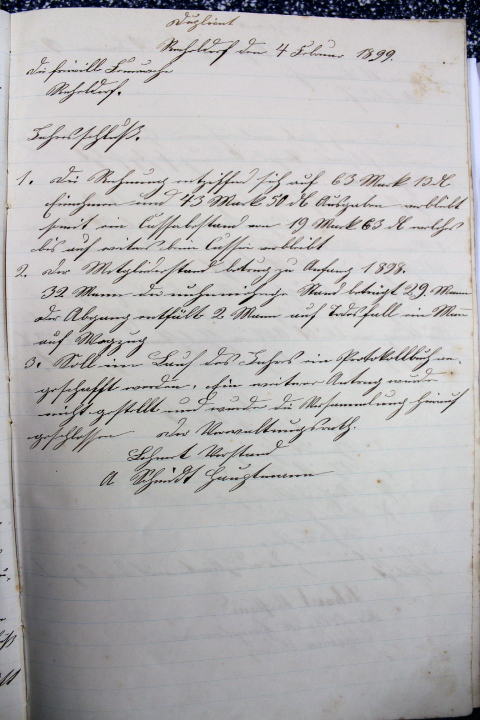 Duplicat
den 4 Februar 1899.
Die freiwille Feuerwehr
Jahresschluß.
1. Die Rechnung entziffert sich auf 63 Mark 13 ₰
Einnahmen und 43 Mark 50 ₰ Ausgaben verbleibt
somit ein Cassabestand von 19 Mark 63 ₰ welcher
bis auf weiteres bei Cassier verbleibt
2. Der Mitgliederstand betrug zu Anfang 1898.
32 Mann der Stand beträgt 29. Mann
der Abgang entfällt 2 Mann auf Todesfall ein Mann
auf Wegzug
3. Soll im Lauf des Jahres ein Protokollbuch an-
geschafft werden, ein weiterer Antrag wurde
nicht gestellt und wurde die Versammlung hierauf
geschlossen Der Verwaltungsrath.
Vorstand
A Schmidt Hauptmann